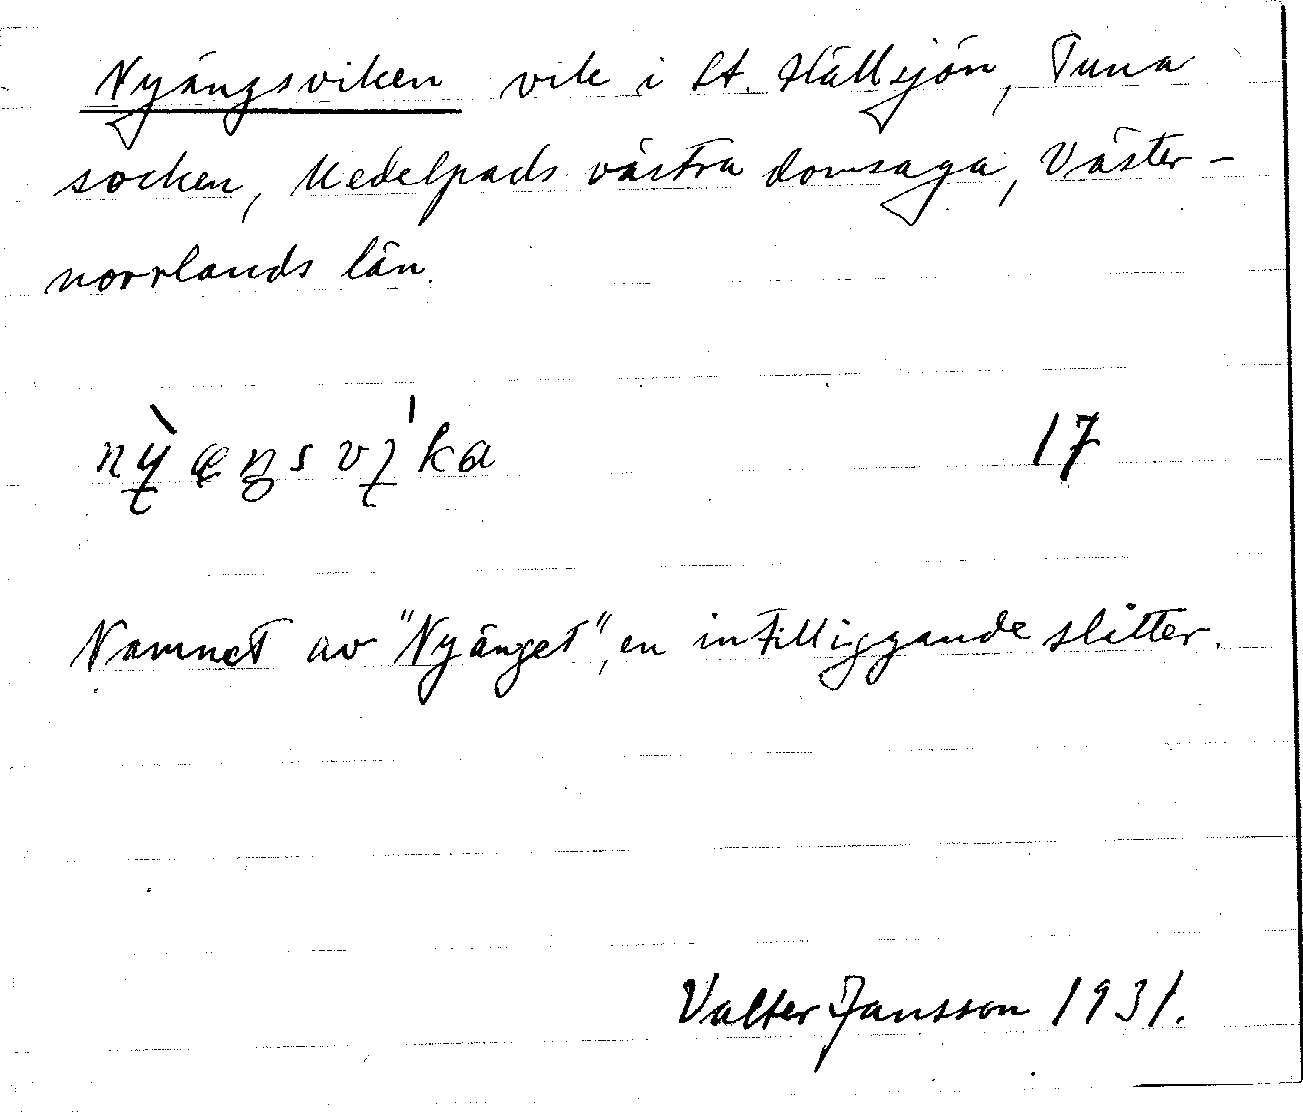 Nyängsviken vik i St. Hällsjön, Tuna
socken, Medelpads västra domsaga, Väster-
norrlands län.
nỳæŋsvi̍ka 17
Namnet av "Nyänget", en intilliggande slåtter.
Valter Jansson 1931.